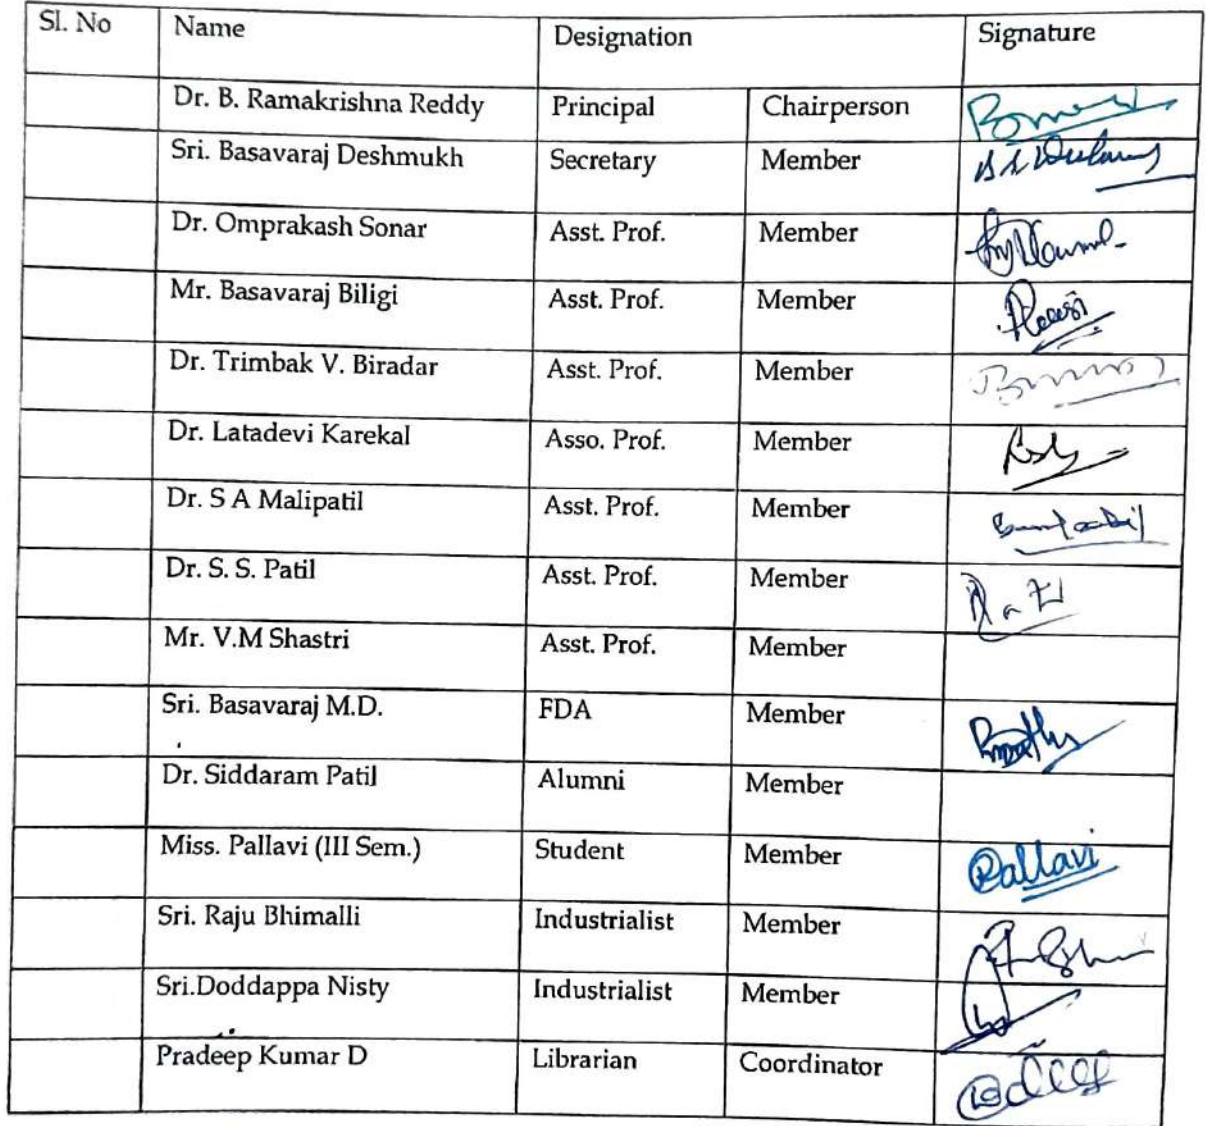 Sl. No Name Designation Signature
Dr. B. Ramakrishna Reddy Principal Chairperson
Sri. Basavaraj Deshmukh Secretary Member
Dr. Omprakash Sonar Asst. Prof. Member
Mr. Basavaraj Biligi Asst. Prof. Member
Dr. Trimbak V. Biradar Asst. Prof. Member
Dr. Latadevi Karekal Asso. Prof. Member
Dr. S A Malipatil Asst. Prof. Member
Dr. S. S. Patil Asst. Prof. Member
Mr. V.M Shastri Asst. Prof. Member
Sri. Basavaraj M.D. FDA Member
Dr. Siddaram Patil Alumni Member
Miss. Pallavi (III Sem.) Student Member Pallavi
Sri. Raju Bhimalli Industrialist Member
Sri.Doddappa Nisty Industrialist Member
Pradeep Kumar D Librarian Coordinator